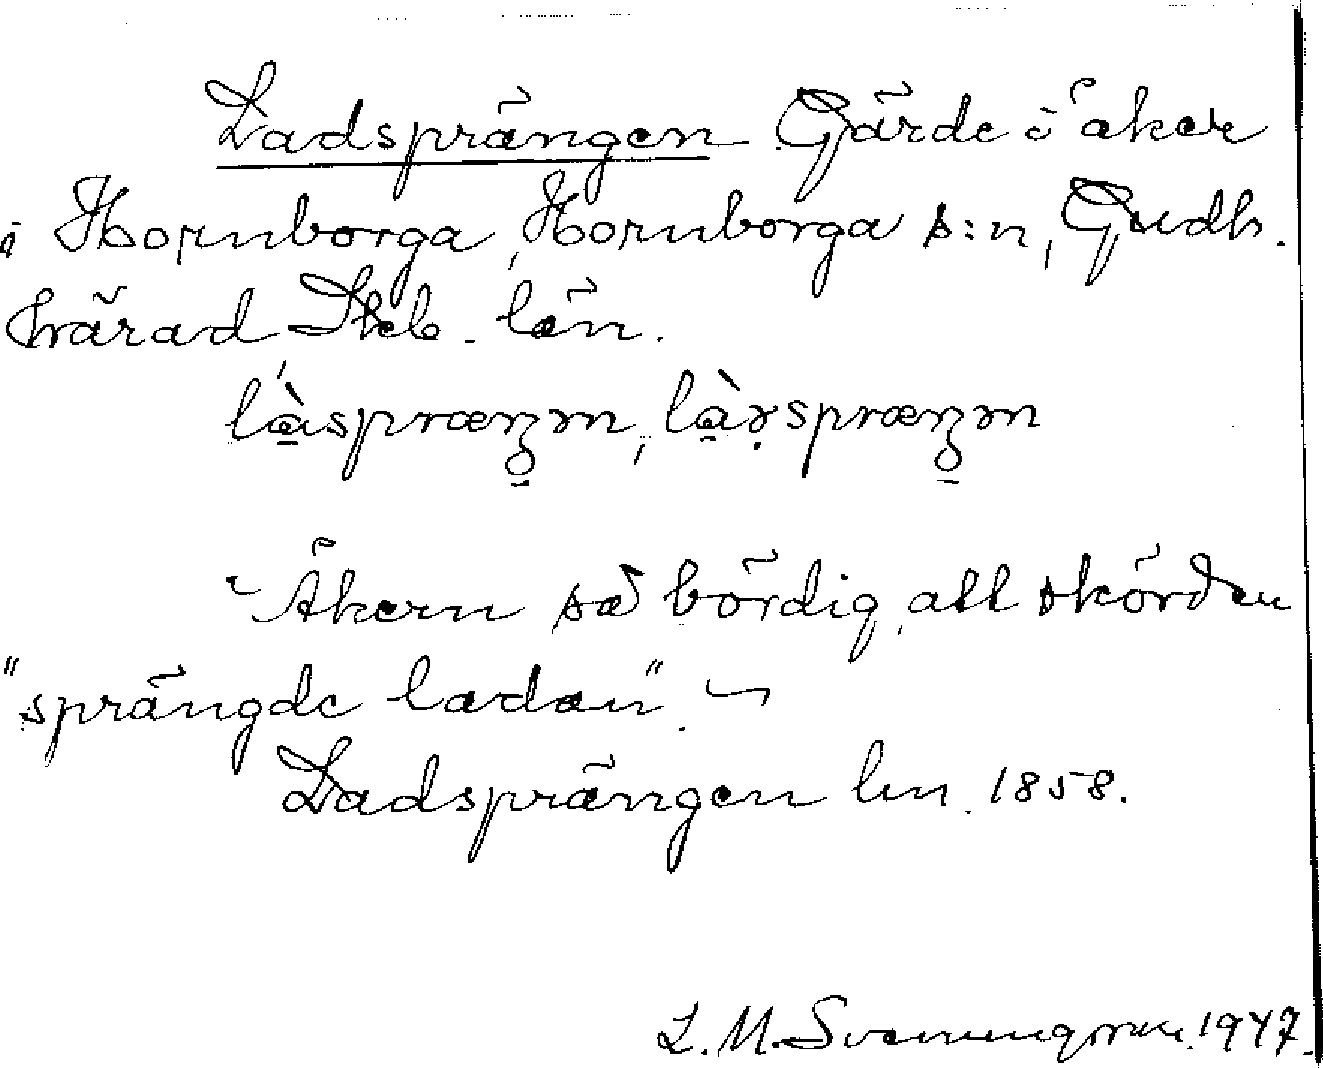 Ladsprängen Gärde o åker
i Hornborga, Hornborga s:n, Gudh.
härad Skb. län.
là̱spræŋən, là̱r̥spræŋən
Åkern så bördig, att skörden
"sprängde ladan".
Ladsprängen lm. 1858.
L. M. Svenungsson. 1947.